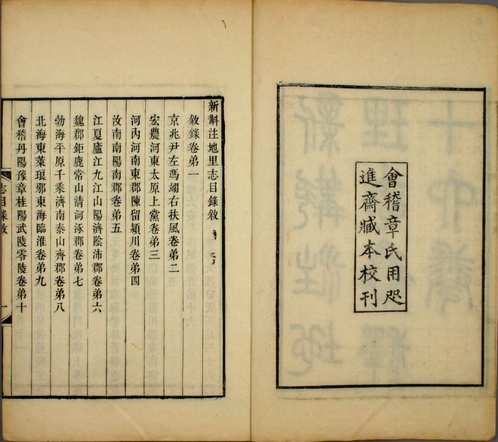 會稽章氏用咫
進齋臧本校刊
新斠注地里志目錄敘
敘錄卷弟一
京兆尹左馮翊右扶風卷弟二
宏農河東太原上黨卷弟三
河內河南東郡陳留潁川卷弟四
汝南南陽南郡卷弟五
江夏廬江九江山陽濟陰沛郡卷弟六
魏郡鉅鹿常山清河涿郡卷弟七
勃海平原千乘濟南泰山齊郡卷弟八
北海東萊琅邪東海臨淮卷弟九
會稽丹陽豫章桂陽武陵零陵卷弟十
志目錄敘 一